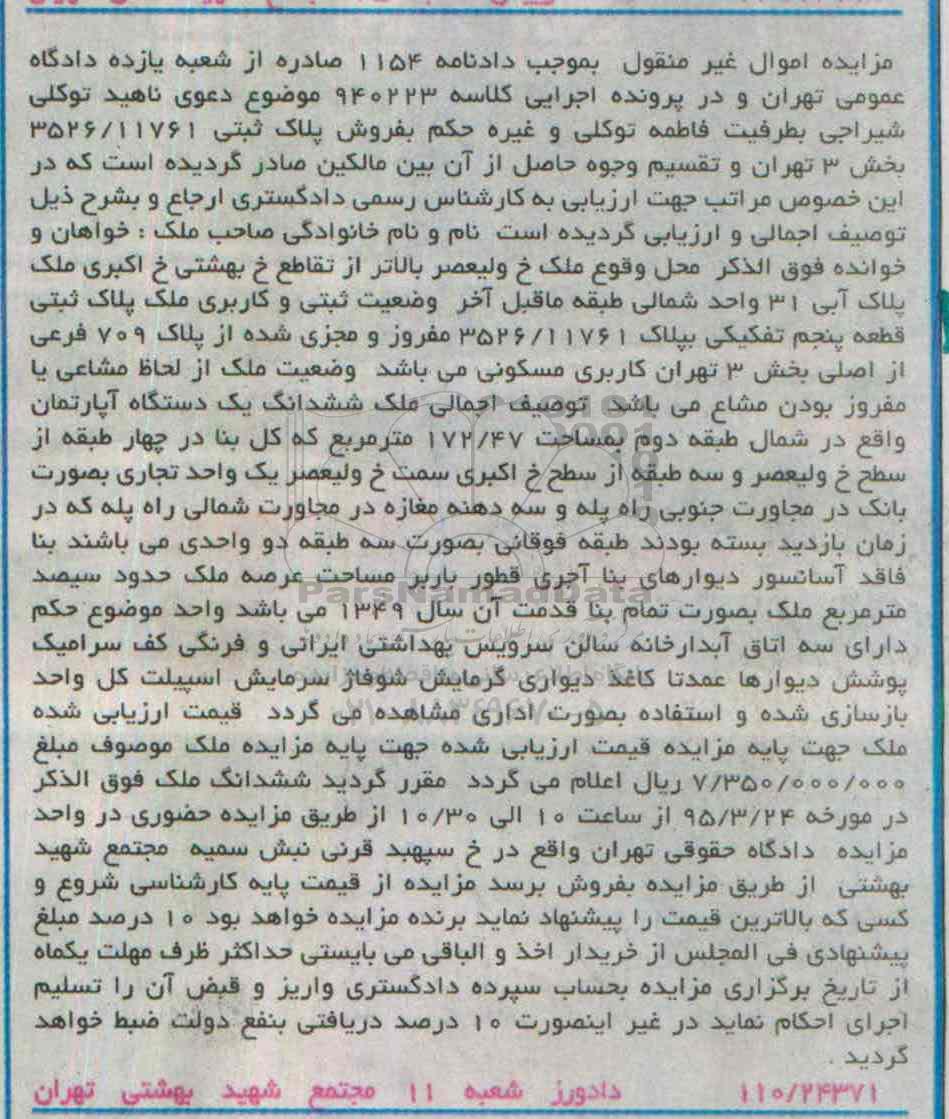 مزایده اموال غیر منقول بموجب دادنامه ۱۱۵۴ صادره از شعبه یازده دادگاه
عمومی تهران و در پرونده اجرایی کلاسه ۹۴۰۲۲۳ موضوع دعوی ناهید توکلی
شیراجی بطرفیت فاطمه توکلی و غیره حکم بفروش پلاک ثبتی ۳۵۲۶/۱۱۷۶۱
بخش ۳ تهران و تقسیم وجوه حاصل از آن بین مالکین صادر گردیده است که در
این خصوص مراتب جهت ارزیابی به کارشناس رسمی دادگستری ارجاع و بشرح ذیل
توصیف اجمالی و ارزیابی گردیده است نام و نام خانوادگی صاحب ملک : خواهان و
خوانده فوق الذکر محل وقوع ملک خ ولیعصر بالاتر از تقاطع خ بهشتی خ اکبری ملک
پلاک آبی ۳۱ واحد شمالی طبقه ماقبل آخر وضعیت ثبتی و کاربری ملک پلاک ثبتی
قطعه پنجم تفکیکی بپلاک ۳۵۲۶/۱۱۷۶۱ مفروز و مجزی شده از پلاک ۷۰۹ فرعی
از اصلی بخش ۳ تهران کاربری مسکونی می باشد وضعیت ملک از لحاظ مشاعی یا
مفروز بودن مشاع می باشد توصیف اجمالی ملک ششدانگ یک دستگاه آپارتمان
واقع در شمال طبقه دوم بمساحت ۱۷۲/۴۷ مترمربع که کل بنا در چهار طبقه از
سطح خ ولیعصر و سه طبقه از سطح خ اکبری سمت خ ولیعصر یک واحد تجاری بصورت
بانک در مجاورت جنوبی راه پله و سه دهنه مغازه در مجاورت شمالی راه پله که در
زمان بازدید بسته بودند طبقه فوقانی بصورت سه طبقه دو واحدی می باشند بنا
فاقد آسانسور دیوارهای بنا آجری قطور باربر مساحت عرصه ملک حدود سیصد
مترمربع ملک بصورت تمام بنا قدمت آن سال ۱۳۴۹ می باشد واحد موضوع حکم
دارای سه اتاق آبدارخانه سالن سرویس بهداشتی ایرانی و فرنگی کف سرامیک
پوشش دیوارها عمدتا کاغذ دیواری گرمایش شوفاژ سرمایش اسپیلت کل واحد
بازسازی شده و استفاده بصورت اداری مشاهده می گردد قیمت ارزیابی شده
ملک جهت پایه مزایده قیمت ارزیابی شده جهت پایه مزایده ملک موصوف مبلغ
۷/۳۵۰/۰۰۰/۰۰۰ ریال اعلام می گردد مقرر گردید ششدانگ ملک فوق الذکر
در مورخه ۹۵/۳/۲۴ از ساعت ۱۰ الی ۱۰/۳۰ از طریق مزایده حضوری در واحد
مزایده دادگاه حقوقی تهران واقع در خ سپهبد قرنی نبش سمیه مجتمع شهید
بهشتی از طریق مزایده بفروش برسد مزایده از قیمت پایه کارشناسی شروع و
کسی که بالاترین قیمت را پیشنهاد نماید برنده مزایده خواهد بود ۱۰ درصد مبلغ
پیشنهادی فی المجلس از خریدار اخذ و الباقی می بایستی حداکثر ظرف مهلت یکماه
از تاریخ برگزاری مزایده بحساب سپرده دادگستری واریز و قبض آن را تسلیم
اجرای احکام نماید در غیر اینصورت ۱۰ درصد دریافتی بنفع دولت ضبط خواهد
گردید .
۱۱۰/۲۴۳۷۱ دادورز شعبه ۱۱ مجتمع شهید بهشتی تهران
ParsNamadData